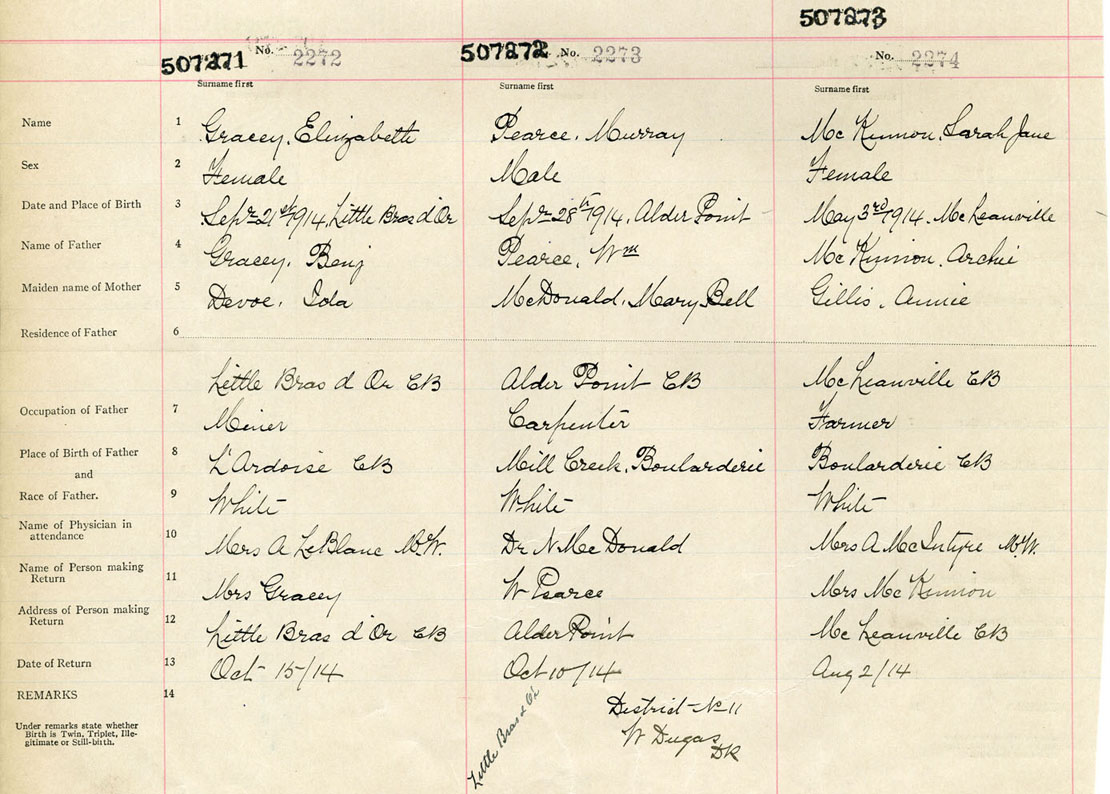 507273
507271 No. 2272 507272 No. 2273 No. 2274
Surname first Surname first Surname first
Name 1 Gracey, Elizabeth Pearce, Murray Mc Kinnon, Sarah Jane
Sex 2 Female Male Female
Date and Place of Birth 3 Sepr 21st 1914, Little Bras d'Or Sepr 28th 1914, Alder Point May 3rd 1914, Mc Leanville
Name of Father 4 Gracey, Benj Pearce, Wm Mc Kinnon, Archie
Maiden name of Mother 5 Devoe, Ida McDonald, Mary Bell Gillis, Annie
Residence of Father 6
Little Bras d Or CB Alder Point CB Mc Leanville CB
Occupation of Father 7 Miner Carpenter Farmer
Place of Birth of Father 8 L'Ardoise CB Mill Creek, Boularderie Boularderie CB
and
Race of Father. 9 White White White
Name of Physician in
attendance 10 Mrs A LeBlanc M.W. Dr N McDonald Mrs A McIntyre M.W.
Name of Person making
Return 11 Mrs Gracey W Pearce Mrs Mc Kinnon
Address of Person making
Return 12 Little Bras d'Or CB Alder Point Mc Leanville CB
Date of Return 13 Oct 15/14 Oct 10/14 Aug 2/14
REMARKS 14
Under remarks state whether
Birth is Twin, Triplet, Ille-
gitimate or Still-birth.
Little Bras d Or
District No 11
W Dugas
DR